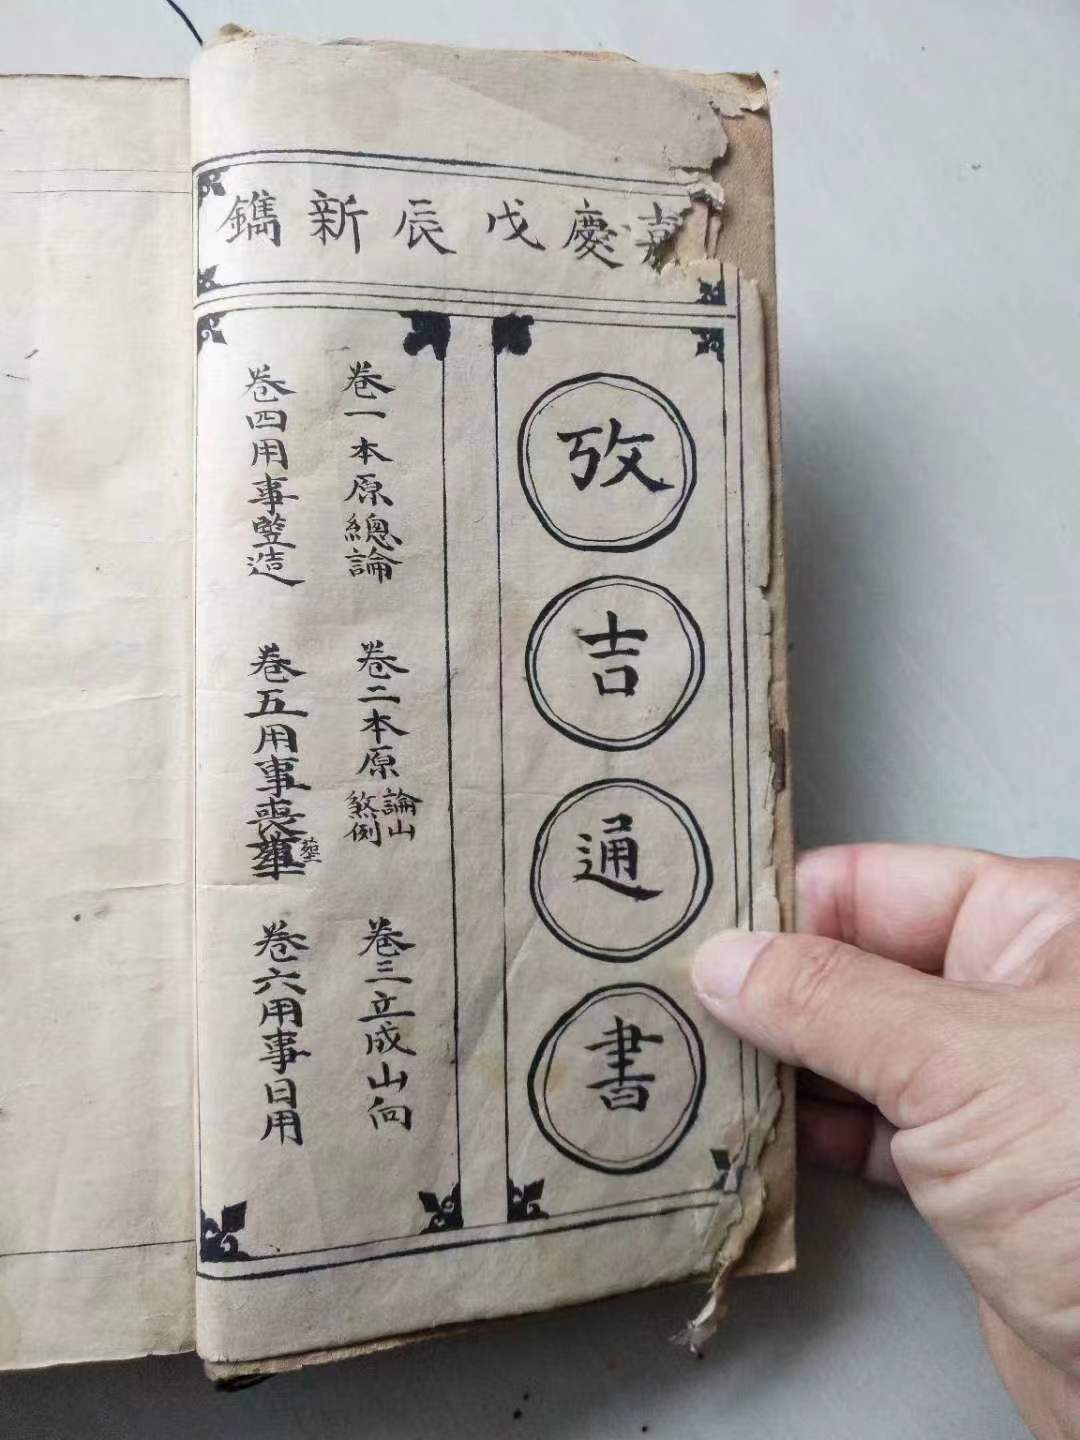 嘉慶戊辰新鐫
攷吉通書
卷一本原總論
卷二本原論山煞例
卷三立成山向
卷四用事竪造
卷五用事喪塟
卷六用事日用